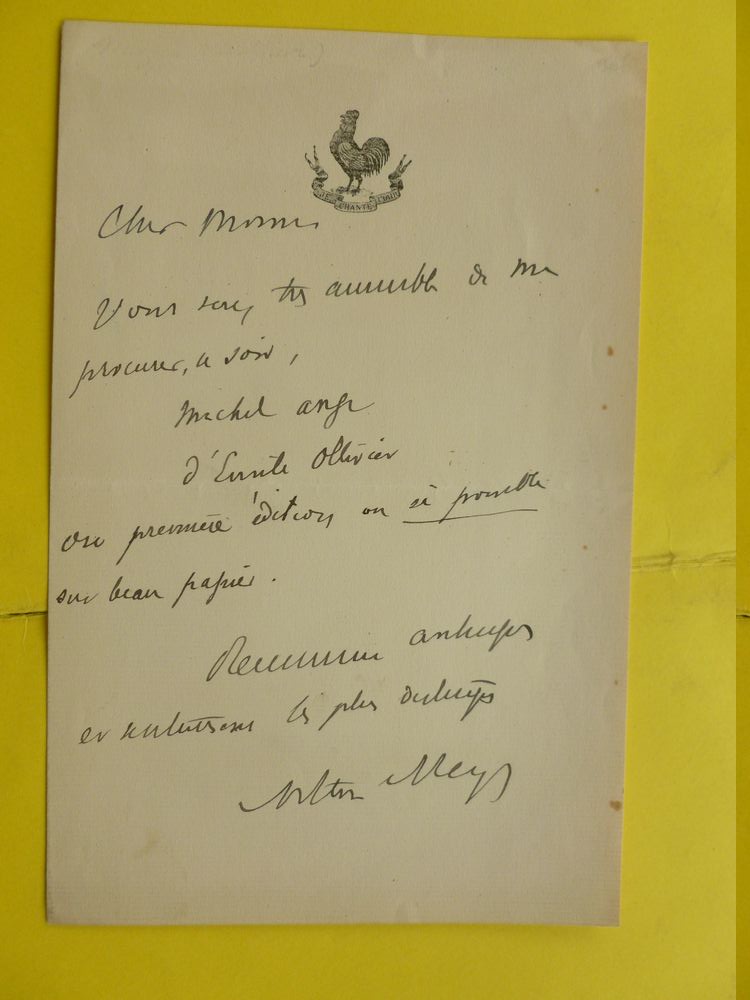 JE CHANTE CLAIR
Cher Monsieur
Vous serez très aimable de me
procurer, ce soir,
Michel ange
d'Emile Ollivier
première édition, ou si possible
sur beau papier.
et salutations les plus distinguées
Arthur Meyer